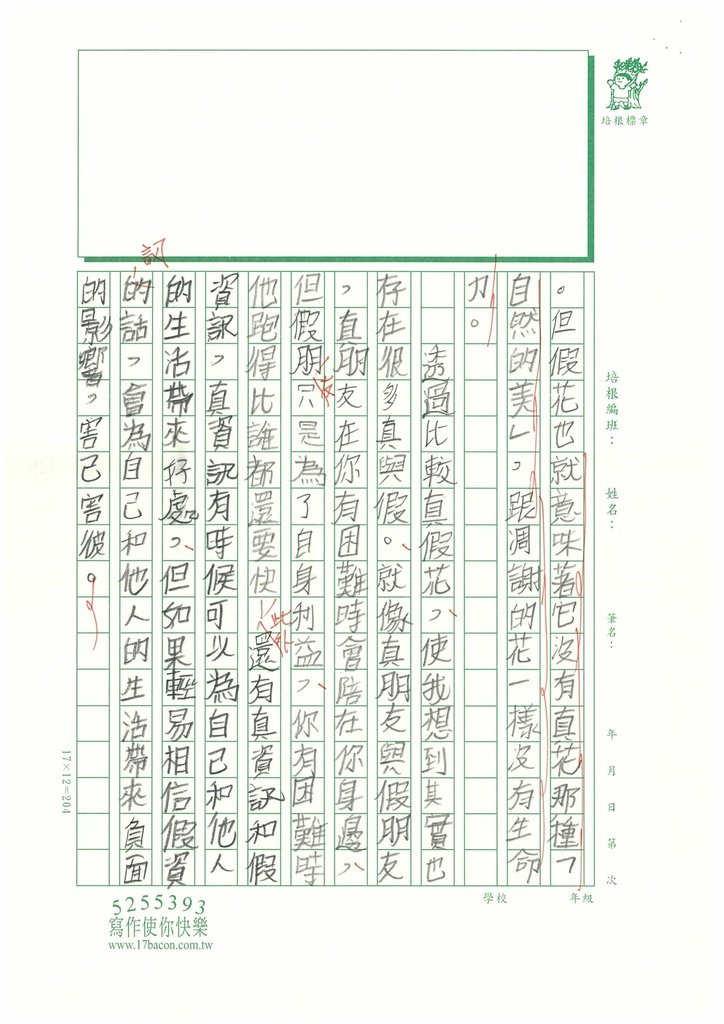 。但假花也就意味著它沒有真花那種「
自然的美」。跟凋謝的花一樣沒有生命
力。
透過比較真假花,使我想到其實也
存在很多真與假。就像真朋友與假朋友
,真朋友在你有困難時會陪在你身邊,
但假朋只是為了自身利益,你有困難時
友
他跑得比誰都還要快,還有真資訊和假
此外
資訊,真資訊有時候可以為自己和他人
的生活帶來好處,但如果輕易相信假資
的話,會為自己和他人的生活帶來負面
訊
的影響,害己害彼。
培根標章
培根編班:
姓名:
筆名:
年 月 日 第 次
學校 年級
17×12=204
5255393
寫作使你快樂
www.17bacon.com.tw